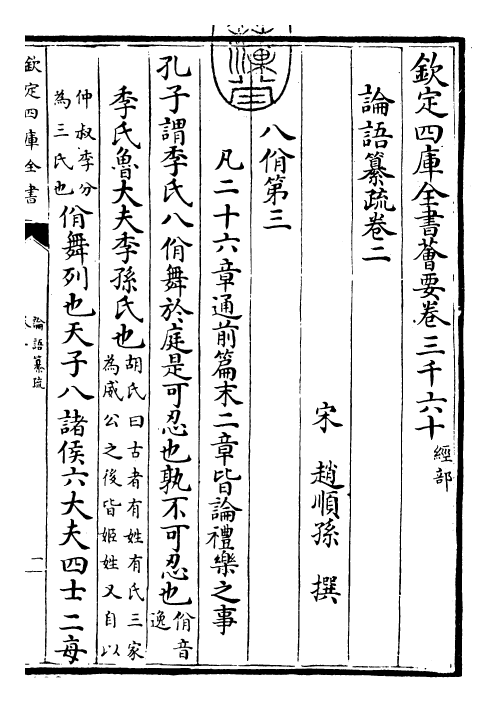 欽定四庫全書薈要卷三千六十 經部
論語纂疏卷二
宋 趙順孫 撰
八佾第三
凡二十六章通前篇末二章皆論禮樂之事
孔子謂季氏八佾舞於庭是可忍也孰不可忍也佾音逸
季氏魯大夫季孫氏也胡氏曰古者有姓有氏三家為威公之後皆姬姓又自以
仲叔季分為三氏也佾舞列也天子八諸侯六大夫四士二每
欽定四庫全書
論語纂疏
一